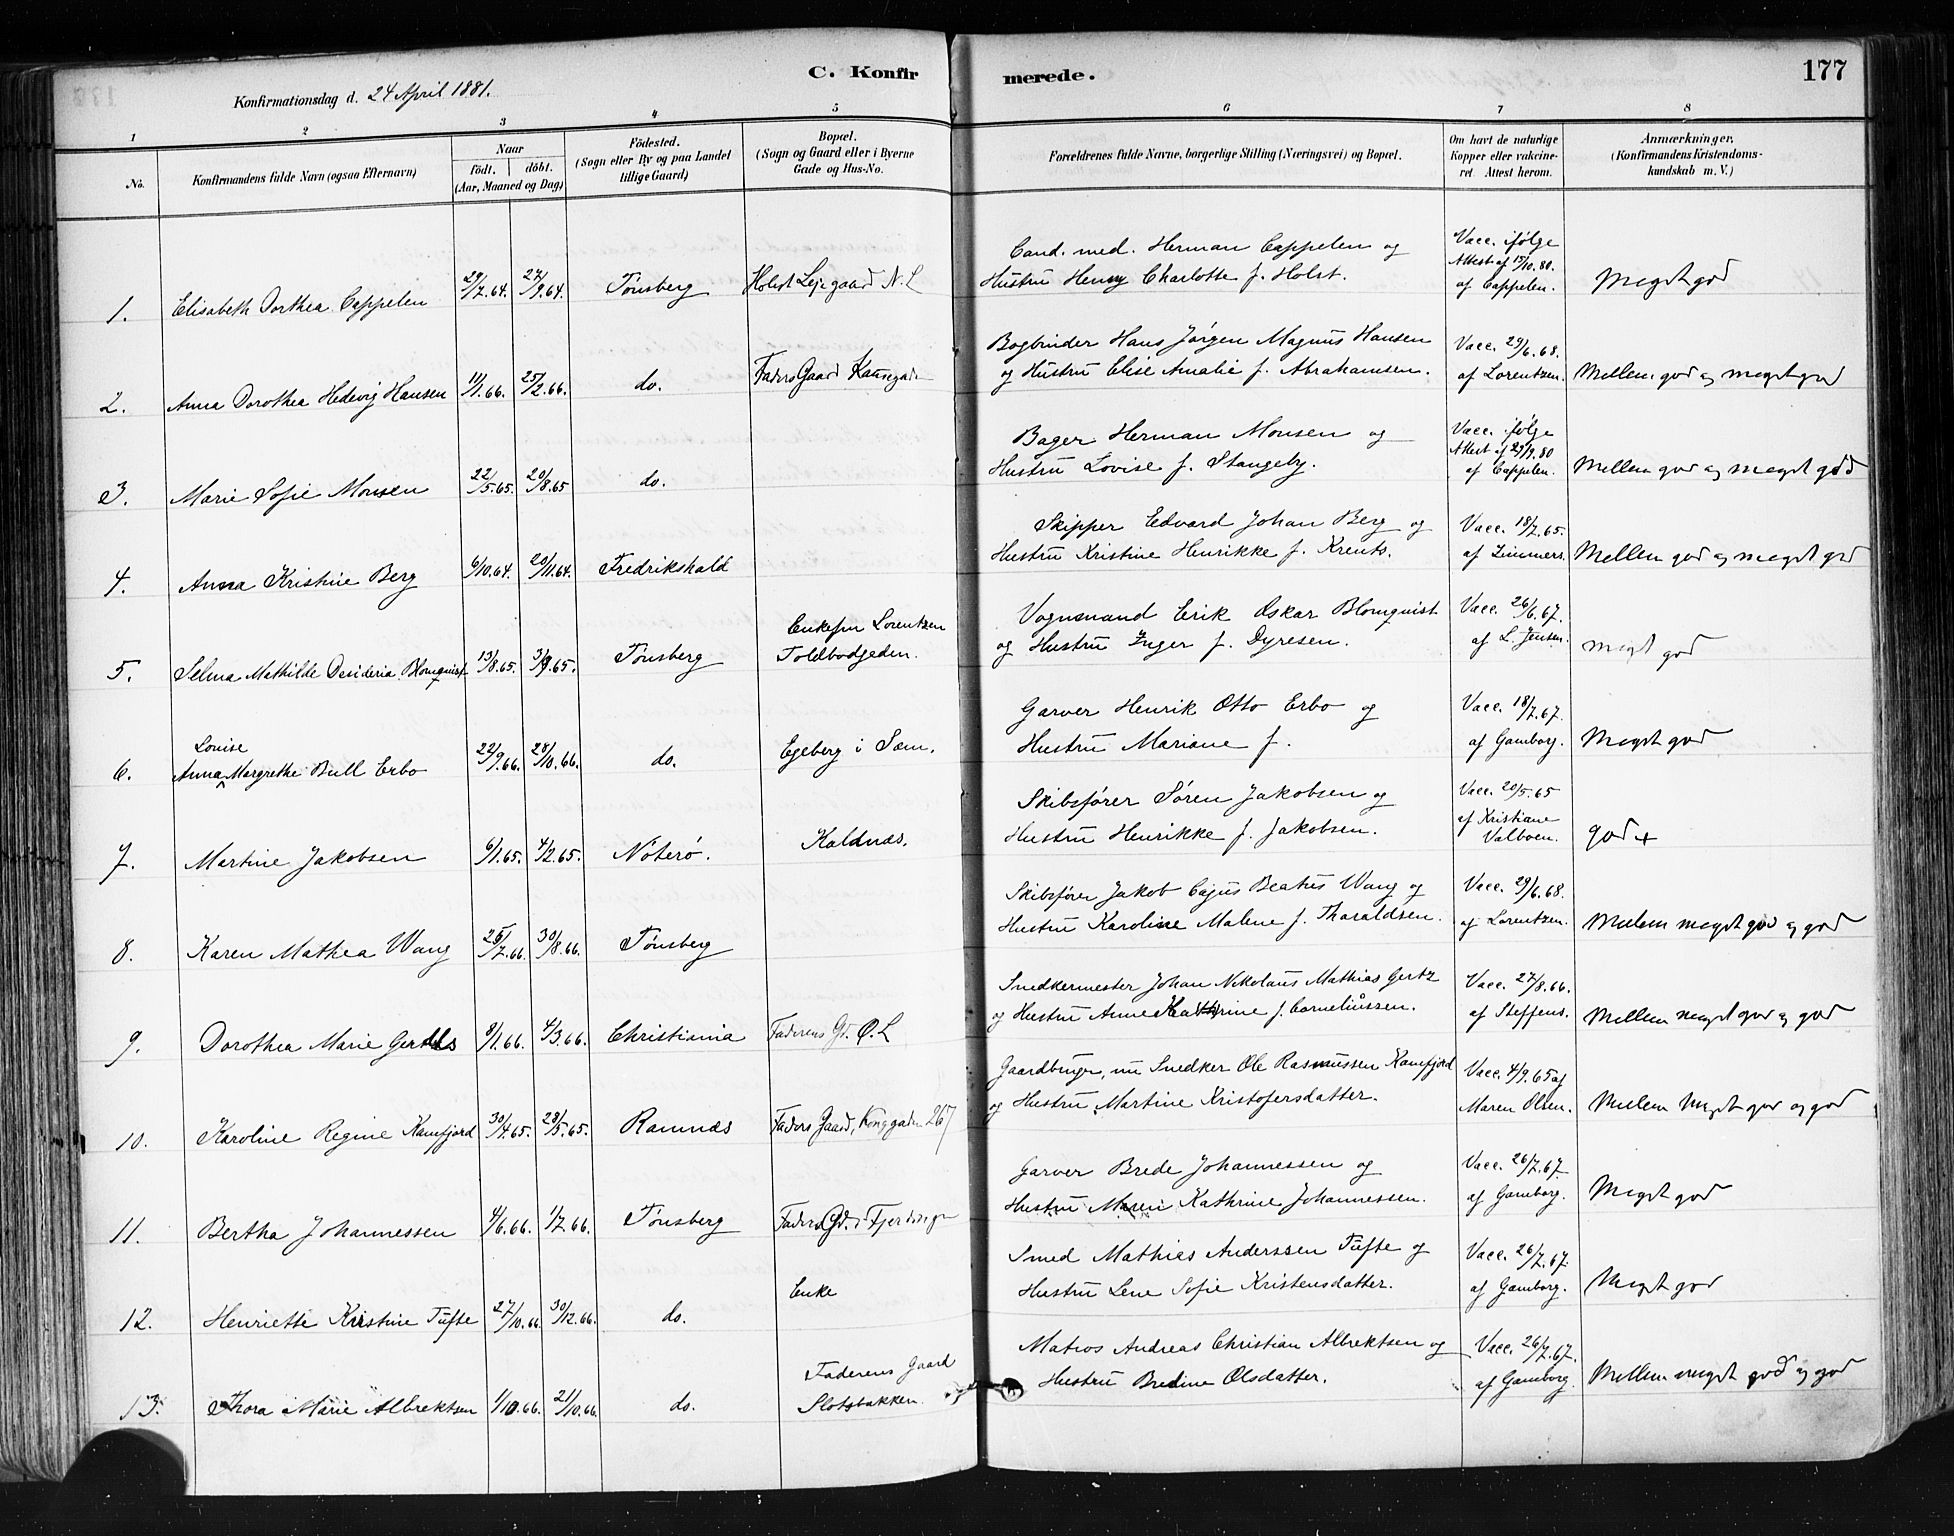 C. Konfirmerede. 177
Konfirmationsdag d. 24 April 1881.
1 2 3 4 5 6 7 8
No. Konfirmandens fulde Navn (ogsaa Efternavn)
Naar
födt. döbt.
(Aar, Maaned og Dag)
Födested.
(Sogn eller By og paa Landet
tillige Gaard)
Bopæl.
(Sogn og Gaard eller i Byerne
Gade og Hus-No.
Forældrenes fulde Navne, borgerlige Stilling (Næringsvei) og Bopæl.
Om havt de naturlige
Kopper eller vakcine-
ret. Attest herom.
Anmærkninger.
(Konfirmandens Kristendoms-
kundskab m. V.)
1. Elisabeth Dorthea Cappelen 29/7.64. 27/9.64. Tönsberg Holst Lejegaard N. L
Cand. med. Herman Cappelen og
Hustru Henny Charlotte f. Holst.
Vacc. ifølge
Attest af 15/10.80.
af Cappelen.
Meget god
2. Anna Dorothea Hedevig Hansen 11/1.66. 25/2.66. do. Faders Gaard
Bogbinder Hans Jørgen Magnus Hansen
og Hustru Elise Amalie f. Abrahamsen.
Vacc. 29/6.68.
af Lorentzen.
Mellem god og meget god
3. Marie Sofie Monsen 22/5.65. 20/8.65 do.
Bager Herman Monsen og
Hustru Lovise f. Stangeby.
Vacc. ifølge
Attest af 29/9.80
af Cappelen.
Mellem god og meget god
4. Anna Kristine Berg 6/10.64. 20/11.64. Fredrikshald
Skipper Edvard Johan Berg og
Hustru Kristine Henrikke f. Krents.
Vacc. 18/7.65.
af Zimmers.
Mellem god og meget god
5. Selma Mathilde Desideria Blomqvist 13/8.65. 3/9.65. Tönsberg
Enkefru Lorentzen
Toldbodgeden.
Vognmand Erik Oskar Blomqvist
og Hustru Inger f. Dyresen.
Vacc. 26/6.67.
af L. Jensen.
meget god
Louise
6. Anna Margrethe Bull Erbo 22/9.66. 28/10.66. do. Egeberg i Sæm.
Garver Henrik Otto Erbo og
Hustru Mariane f.
Vacc. 18/7.67.
af Gamborg.
Meget god
7. Martine Jakobsen 6/1.65. 4/2.65. Nöterö. Kaldnæs.
Skibsfører Søren Jakobsen og
Hustru Henrikke f. Jakobsen.
Vacc. 20/5.65
af Kristiane
Valboen.
god +
8. Karen Mathea Wang 25/7.66. 30/8.66. Tönsberg
Skibsfører Jakob Cajus Beatus Wang og
Hustru Karoline Malene f. Tharaldsen.
Vacc. 29/6.68.
af Lorentzen.
Mellem meget god og god
9. Dorothea Marie 9/1.66. 4/3.66. Christiania Faderens Gd. Ø. L
Snedkermester Johan Nikolaus Mathias Gertz
og Hustru Anne Kathrine f. Corneliussen.
Vacc. 27/8.66.
af Steffens.
Mellem meget god og god
10. Karoline Regine Kamfjord 30/4.65. 28/5.65. Ramnæs Faders Gaard, Konggaden 267
Gaardbruger, nu Snedker Ole Rasmussen Kamfjord
og Hustru Martine Kristofersdatter.
Vacc. 4/9.65 af
Maren Olsen.
Mellem Meget god og god
11. Bertha Johannessen 4/6.66. 1/7.66. Tönsberg Faders Gd. i
Garver Brede Johannessen og
Hustru Maren Kathrine Johannessen.
Vacc. 26/7.67.
af Gamborg.
Meget god
12. Henriette Kristine Tufte 27/10.66 30/12.66. do. Enke
Smed Mathias Anderssen Tufte og
Hustru Lene Sofie Kristensdatter.
Vacc. 26/7.67.
af Gamborg.
Meget god
13. Thora Marie Albrektsen 1/10.66. 21/10.66. do.
Faderens Gaard
Slotsbakken.
Matros Andreas Christian Albrektsen og
Hustru Bredine Olsdatter.
Vacc. 26/7.67.
af Gamborg.
Mellem meget god og god